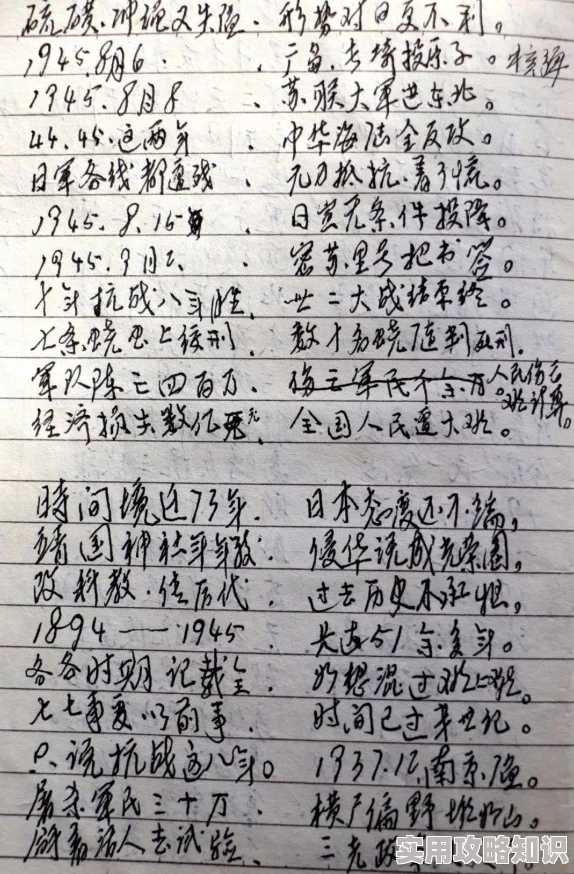 硫磺、冲绳又失陷、形势对日更不利。
1945.8月6、广岛、长埼投原子。核弹
1945.8月8、苏联大军进东北。
44.45.这两年、中华海陆全反攻。
日军各线都遭残、无力抵抗、着了慌。
1945.8.15、日寇无条件投降。
1945.9月2.、密苏里号把书签。
十年抗战八年胜、世二大战结束终。
七条上绞刑、数十名随判死刑。
军队阵亡四百万、人民伤亡
经济损失数亿元、全国人民遭大难。难计算。
時间境近73年、日本态度还不端,
靖国神社年年教、侵华说成光荣圈,
改科教、传后代、过去历史不承担,
1894——1945、长达51余多年。
各各时期记载全、妙想混过难上难。
七七事变以前事、时间已过半世纪。
只说抗战这八年。1937.12,南京陷。
屠杀军民三十万、横尸偏野堆如山。
解剖活人去试验、三光政
实用攻略知识